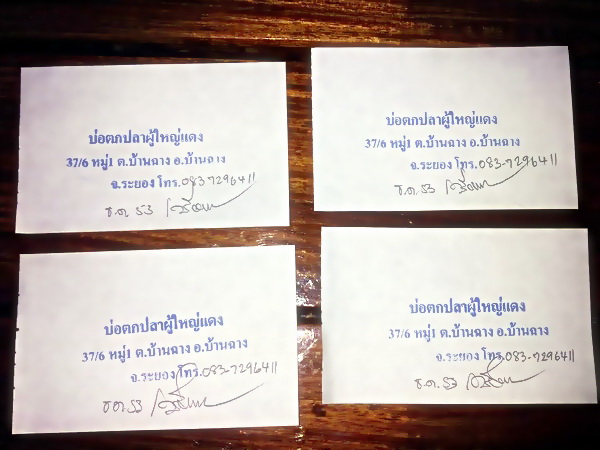 บ่อตกปลาผู้ใหญ่แดง
37/6 หมู่1 ต.บ้านฉาง อ.บ้านฉาง
จ.ระยอง โทร.083-7296411
ธ.ค. 53
บ่อตกปลาผู้ใหญ่แดง
37/6 หมู่1 ต.บ้านฉาง อ.บ้านฉาง
จ.ระยอง โทร.083-7296411
ธ.ค. 53
บ่อตกปลาผู้ใหญ่แดง
37/6 หมู่1 ต.บ้านฉาง อ.บ้านฉาง
จ.ระยอง โทร.083-7296411
ธ.ค. 53
บ่อตกปลาผู้ใหญ่แดง
37/6 หมู่1 ต.บ้านฉาง อ.บ้านฉาง
จ.ระยอง โทร.083-7296411
ธ.ค. 53